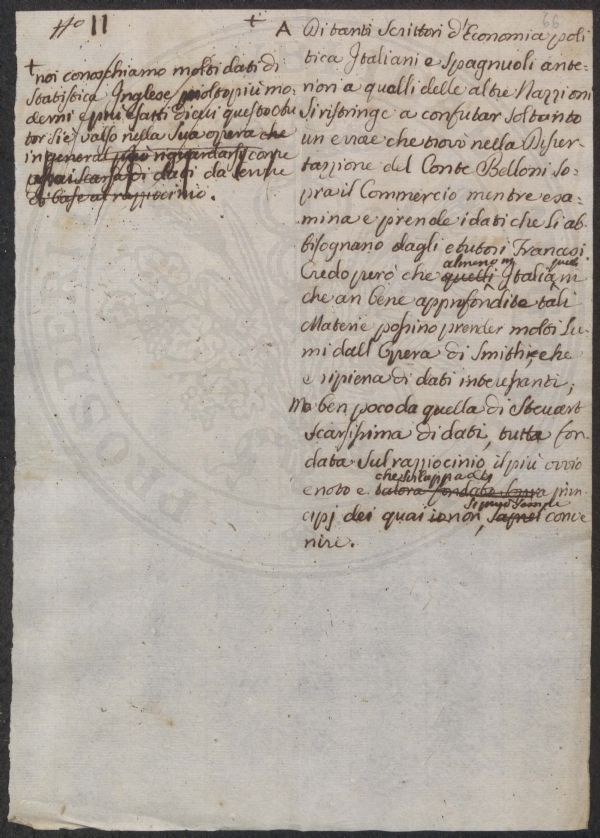 No 11
+ noi conoschiamo molti dati di
Statistica Inglese molto più mo,
derni e più esatti di cui questo Au
tor si è valso nella Sua opera che
in general può riguardarsi come
assai Scarsa di dati da Servire
di base al raziocinio.
+ A Di tanti Scrittori d'Economia poli
tica Italiani e Spagnuoli ante-
riori a quelli delle altre Nazzioni
Si ristringe a confutar Soltanto
un errore che trovò nella Disser-
tazzione del Conte Belloni So-
pra il Commercio mentre esa-
mina e prende i dati che Si ab-
bisognano dagli Autori Francesi.
Credo però che almeno in quelli Italiani
che an bene approfondite tali
Materie possino prender molti Lu-
mi dall'Opera di Smith, che
è ripiena di dati interessanti;
Ma ben poco da quella di Steuart
Scarsissima di dati, tutta fon-
data Sul razziocinio il più ovvio
e noto e che sviluppa talora fondate Sopra prin-
cipj dei quai io non Saprei conve
nire.
66